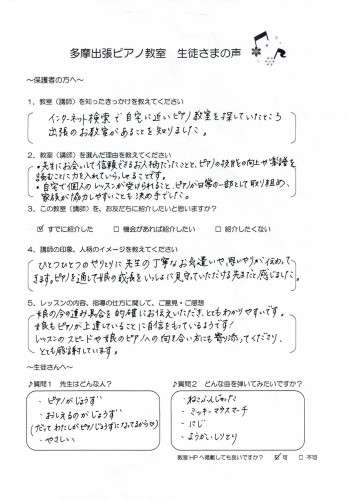 多摩出張ピアノ教室　生徒さまの声
～保護者の方へ～
1，教室（講師）を知ったきっかけを教えてください
インターネット検索で自宅に近いピアノ教室を探していたところ
出張のお教室があることを知りました。
2．教室（講師）を選んだ理由を教えてください
・先生にお会いして信頼できるお人柄だったことと、ピアノの技術の向上や楽譜を
読むことに力を入れていらしゃることです。
・自宅で個人のレッスンが受けられること、ピアノが日常の一部として取り組め、
家族が協力しやすいことも決め手でした。
3．この教室（講師）を、お友だちに紹介したいと思いますか？
☑ すでに紹介した　□ 機会があれば紹介したい　□ 紹介したくない
4．講師の印象、人柄のイメージを教えてください
ひとつひとつのやりとりに先生の丁寧なお気遣いや、思いやりが伝わって
きます。ピアノを通して娘の成長をいっしょに見守っていただける先生だと感じました。
5．レッスンの内容、指導の仕方に関して、ご意見・ご感想
娘の今の進み具合を的確にお伝えいただき、とてもわかりやすいです。
娘もピアノが上達していることに自信をもっているようです！
レッスンのスピードや娘のピアノへの向き合い方にも寄り添ってくださり、
とても感謝しています。
～生徒さんへ～
♪質問1　先生はどんな人？
・ピアノがじょうず
・おしえるのがじょうず
（だって わたしがピアノじょうずになってるから♡）
・やさしい
♪質問2　どんな曲を弾いてみたいですか？
・ねこふんじゃった
・ミッキーマウスマーチ
・にじ
・ようかいしりとり
教室HPへ掲載しても良いですか？　☑ 可　□ 不可